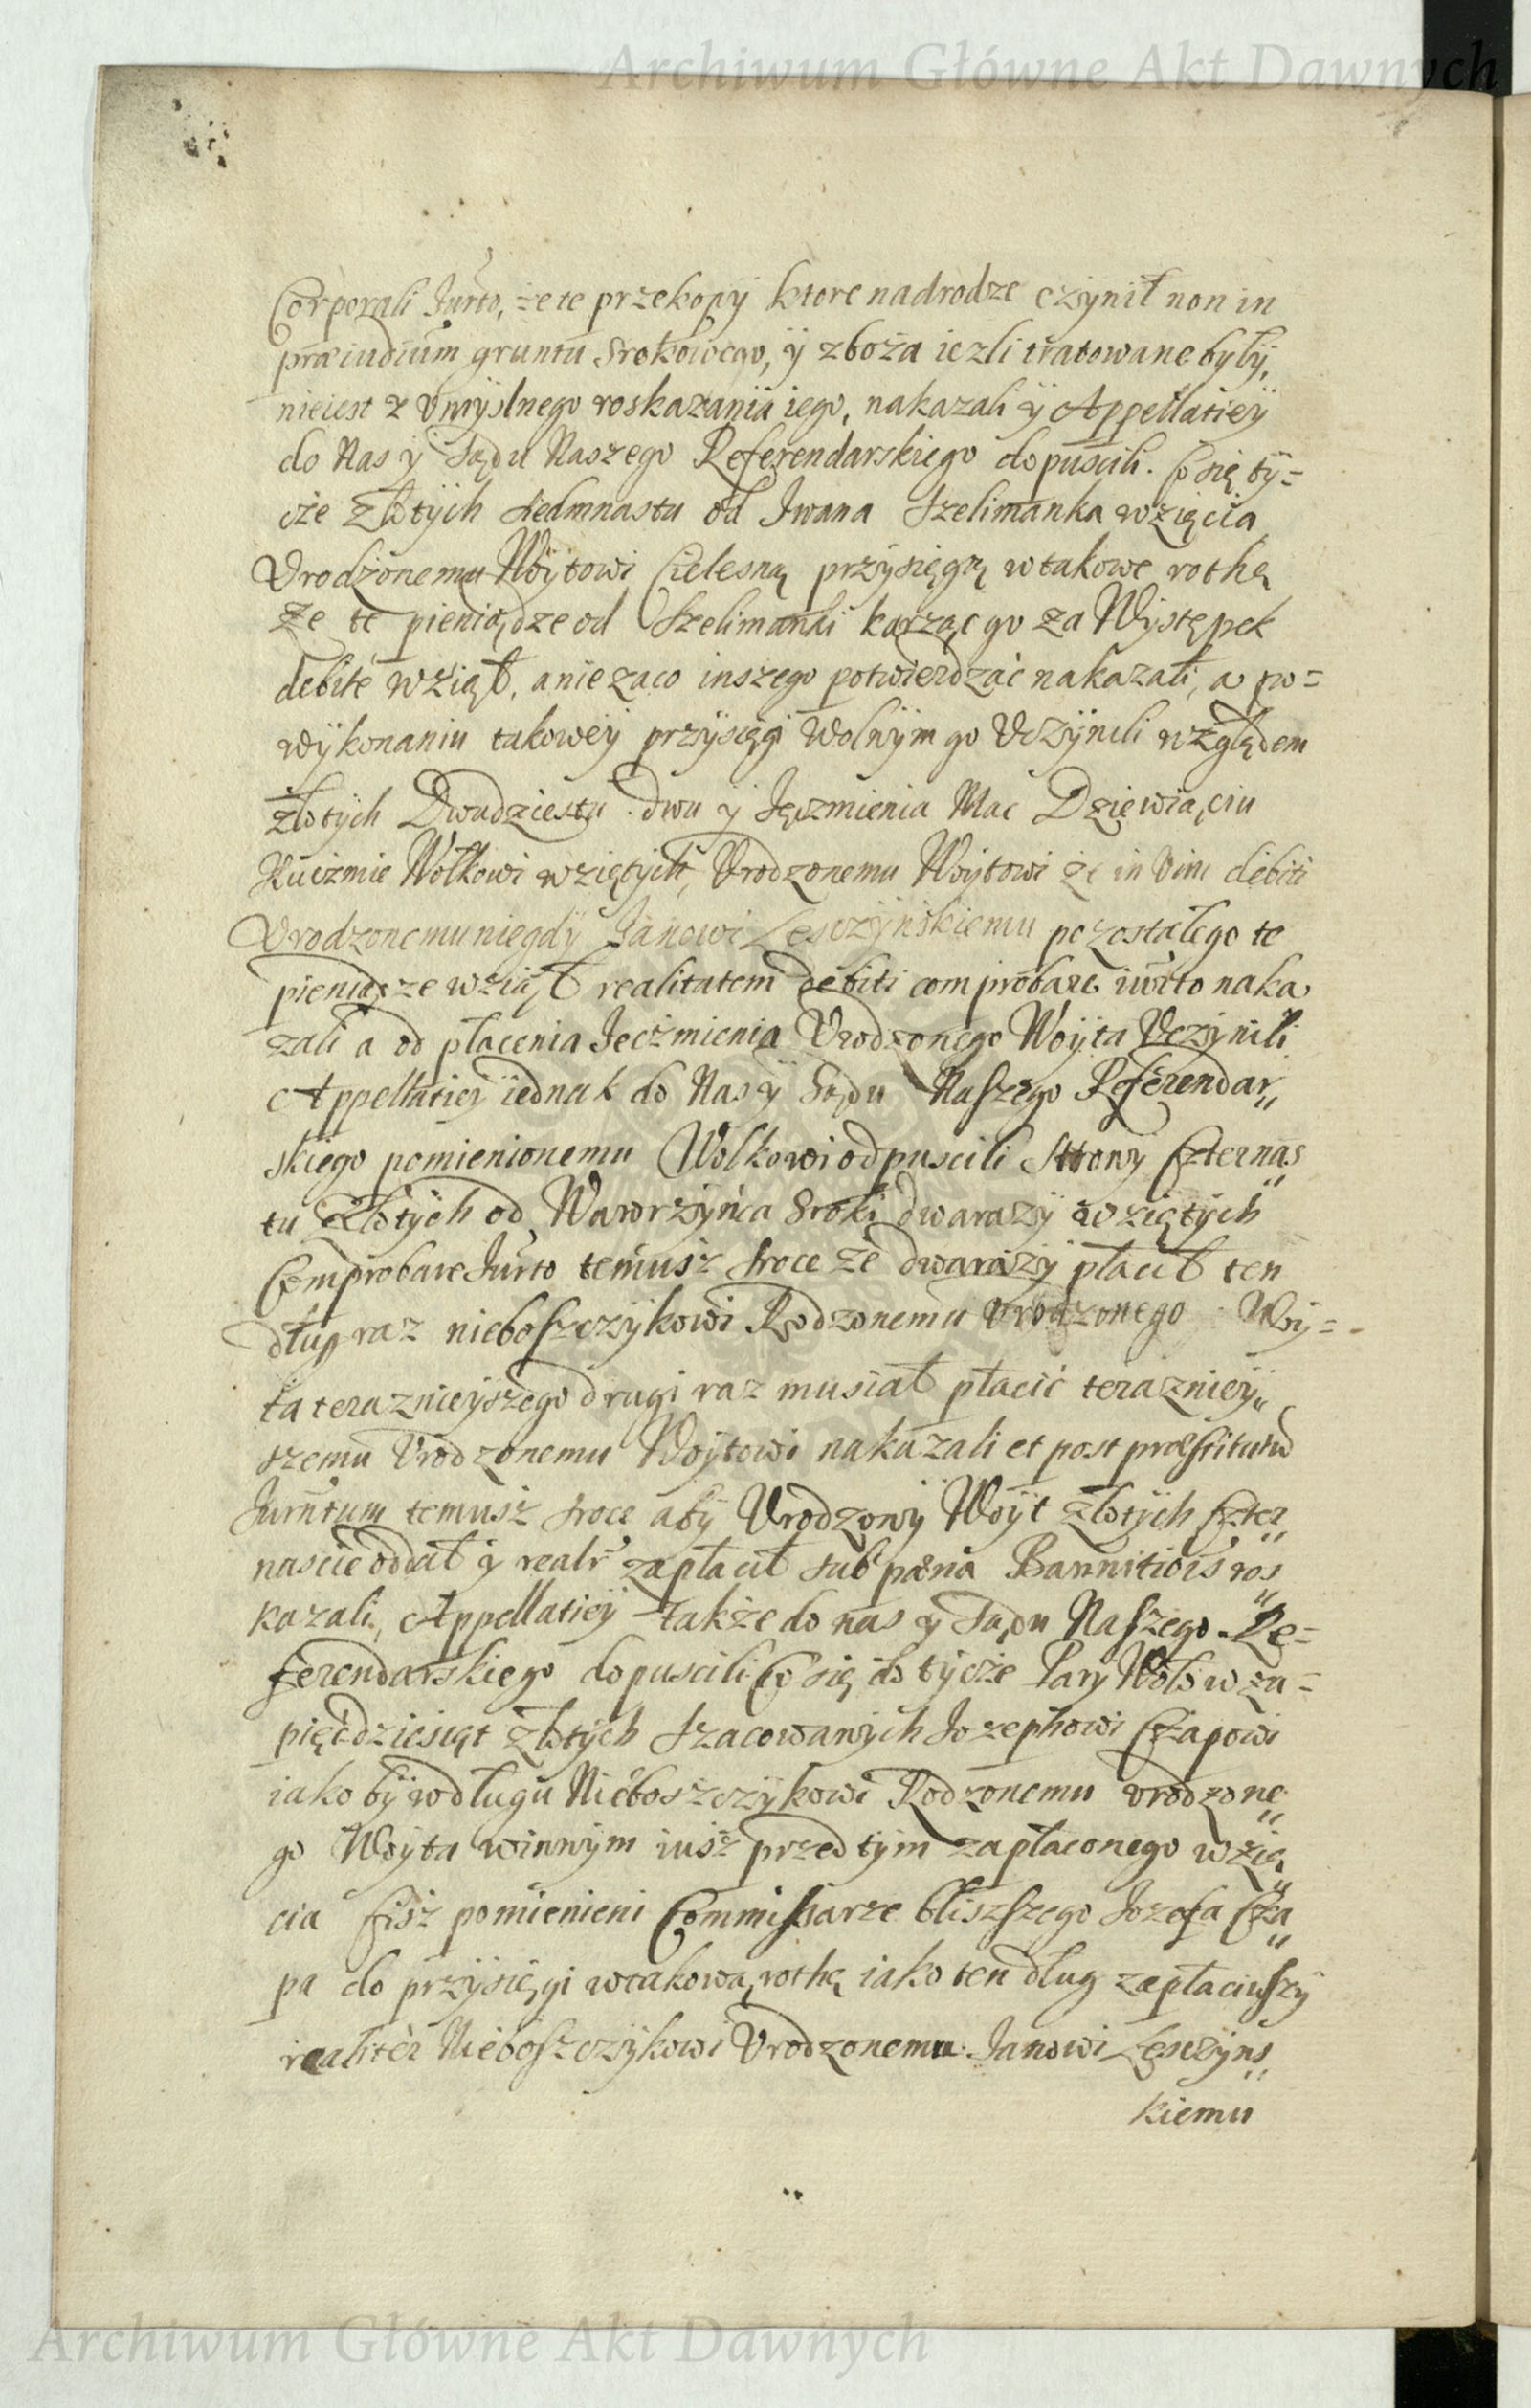 Archiwum Główne Akt Dawnych
Corporali Jurto, że te przekopÿ ktore nadrodze czÿnił non in
præiudium gruntu Srokowego, ÿ zboża iezli tratowane bÿłÿ,
nieiest z Vmÿslnego roskazania iego, nakazali ÿ Appellatieÿ
do Nas ÿ Sądu Naszego Referendarskiego dopuscili. Co się tÿ=
cże Złotÿch siedmnastu od Iwana Szelimanka wzięcia
Vrodzonemu Woÿtowi Cielesną przÿsięgą wtakowe rothę
Ze te pieniądze od Szelimanki karząc go za Wÿstępek
debite wziął, anie zaco inszego potwierdzać nakazali, a po=
wÿkonaniu takoweÿ przÿsięgi Wolnÿm go Vczÿnili względem
złotÿch Dwudziestu dwu ÿ Jęczmienia Mac Dziewiąciu
Kuźmie Wołkowi wziętÿch, Vrodzonemu Woÿtowi że in Vim debiti
Vrodzonemu niegdÿ Janowi Lesczÿnskiemu pozostałego te
pieniądze wziął realitatem debiti comprobare iurto naka
zali a od płacenia Jecżmienia Vrodzonego Woÿta Vczÿnili
Appellatieÿ iednak do Nas ÿ Sądu Naszego Referendar„
skiego pomienionemu Wolkowi odpuscili Strony Czternas„
tu Złotÿch od Wawrzÿńca Sroki dwarazÿ wziętÿch
Comprobare Jurto temusz Sroce że dwarazÿ płacił ten
dług raz nieboszczÿkowi Rodzonemu Vrodzonego Woÿ=
ta teraznieÿszego drugi raz musiał płacić teraznieÿ„
szemu Vrodzonemu Woÿtowi nakazali et post præstitum
Jurntum temusz Sroce abÿ Vrodzonÿ Woÿt złotÿch Czter„
nascie oddał ÿ realr zapłacił sub pæna Bannitiois ros„
kazali, Appellatieÿ także do nas ÿ Sądu Naszego Re=
ferendarskiego dopuscili Co się do tÿcże Parÿ Wołow za=
pięćdziesiąt złotÿch szacowanÿch Jozephowi Czapowi
iakobÿ wdługu Nieboszczÿkowi Rodzonemu vrodzone„
go Woÿta winnÿm iusz przed tÿm zapłaconego wzię„
cia Ciż pomienieni Commissarze bliszszego Jozefa Cza„
pa do przÿsięgi wtakową rothę iako ten dług zapłaciwszÿ
realiter Nieboszczÿkowi Vrodzonemu Janowi Lesczÿns„
kiemu
Archiwum Główne Akt Dawnych